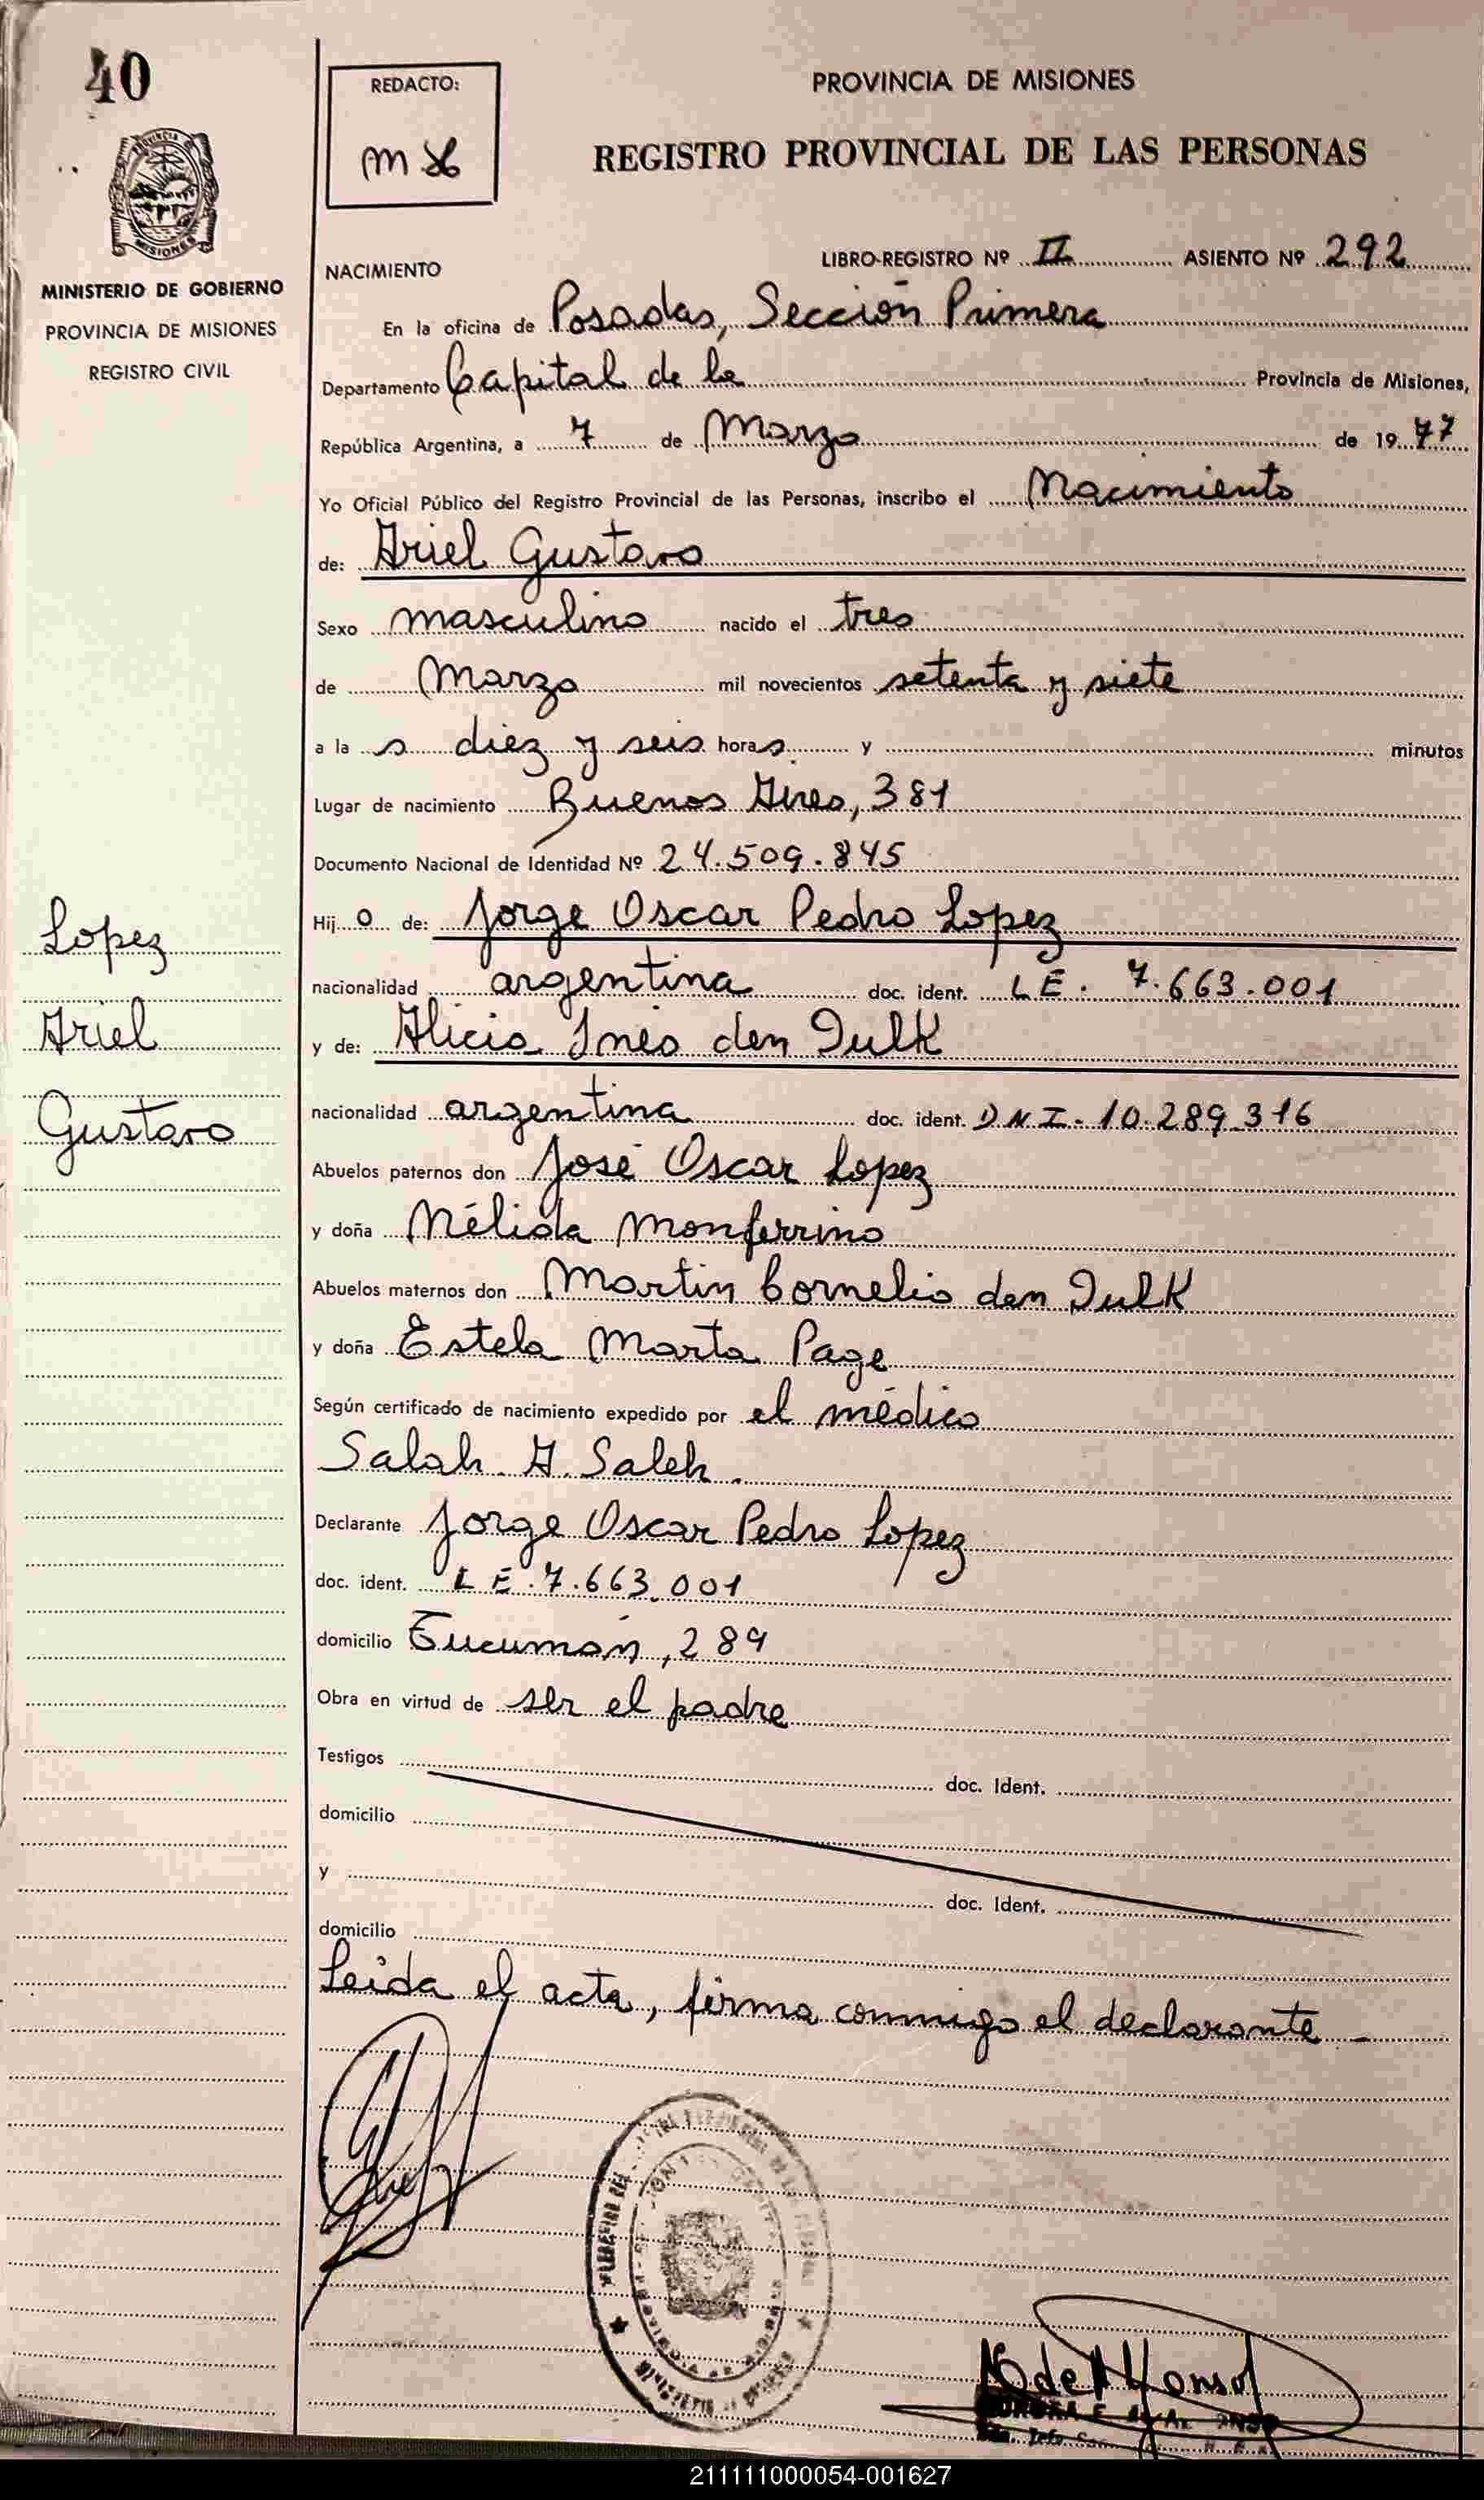 40
REDACTO:
PROVINCIA DE MISIONES
REGISTRO PROVINCIAL DE LAS PERSONAS
MISIONES
MINISTERIO DE GOBIERNO
PROVINCIA DE MISIONES
REGISTRO CIVIL
NACIMIENTO
LIBRO-REGISTRO Nº II ASIENTO Nº 292
En la oficina de Posadas, Sección Primera
Departamento Capital de la Provincia de Misiones,
República Argentina, a 7 de Marzo de 1977
Yo Oficial Público del Registro Provincial de las Personas, inscribo el Nacimiento
de: Ariel Gustavo
Sexo masculino nacido el tres
de Marzo mil novecientos setenta y siete
a la s diez y seis horas y minutos
Lugar de nacimiento Buenos Aires, 381
Documento Nacional de Identidad Nº 24.509.845
Hij o de: Jorge Oscar Pedro Lopez
nacionalidad argentina doc. ident. LE. 7.663.001
y de: Alicia Inés den Dulk
nacionalidad argentina doc. ident. D.N.I. 10.289.316
Abuelos paternos don José Oscar Lopez
y doña Nélida Monferrino
Abuelos maternos don Martin Cornelio den Dulk
y doña Estela Marta Page
Según certificado de nacimiento expedido por el médico
Salah A. Saleh.
Declarante Jorge Oscar Pedro Lopez
doc. ident. L E. 7.663.001
domicilio Tucumán, 289
Obra en virtud de ser el padre
Testigos doc. Ident.
domicilio
y doc. Ident.
domicilio
Leida el acta, firma conmigo el declarante -
Lopez
Ariel
Gustavo
211111000054-001627